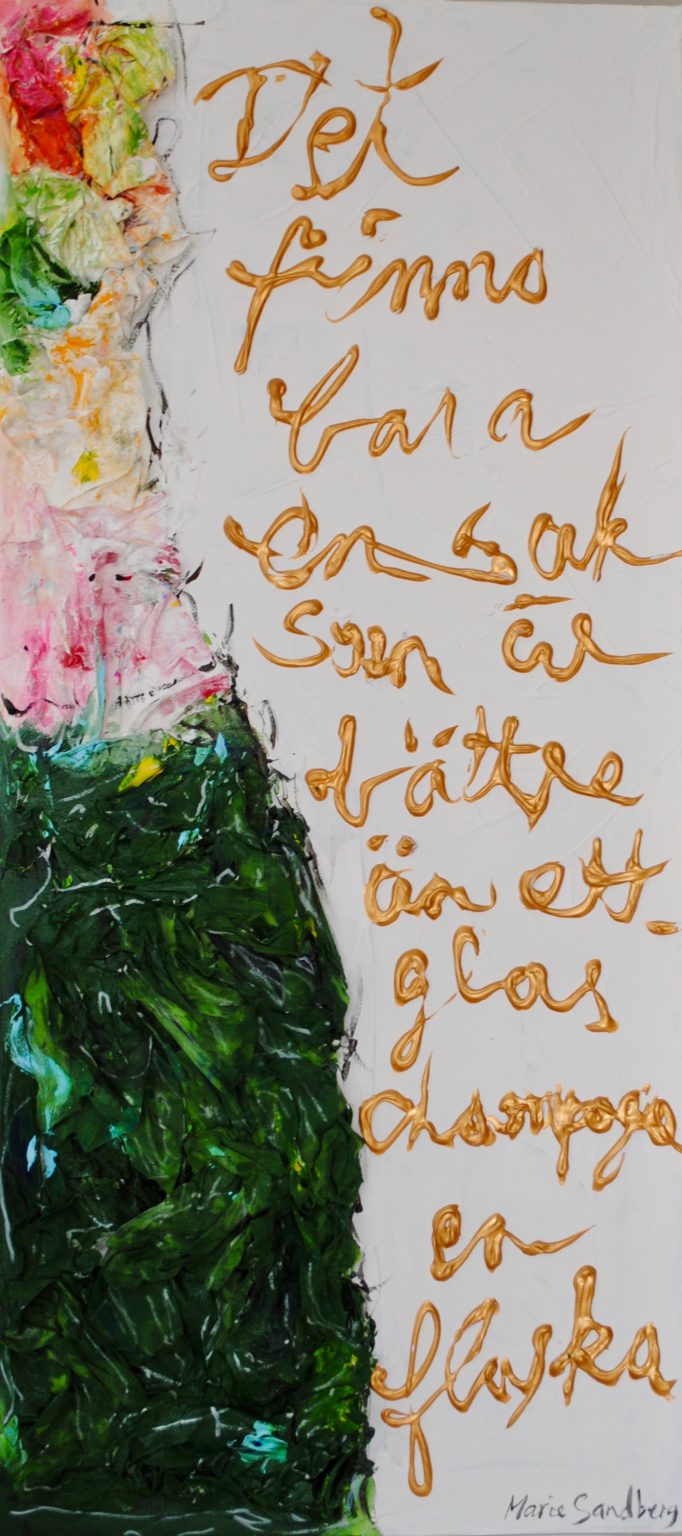 Det
finns
bara
en sak
som är
bättre
än ett
glas
champagne
en
flaska
Marie Sandberg